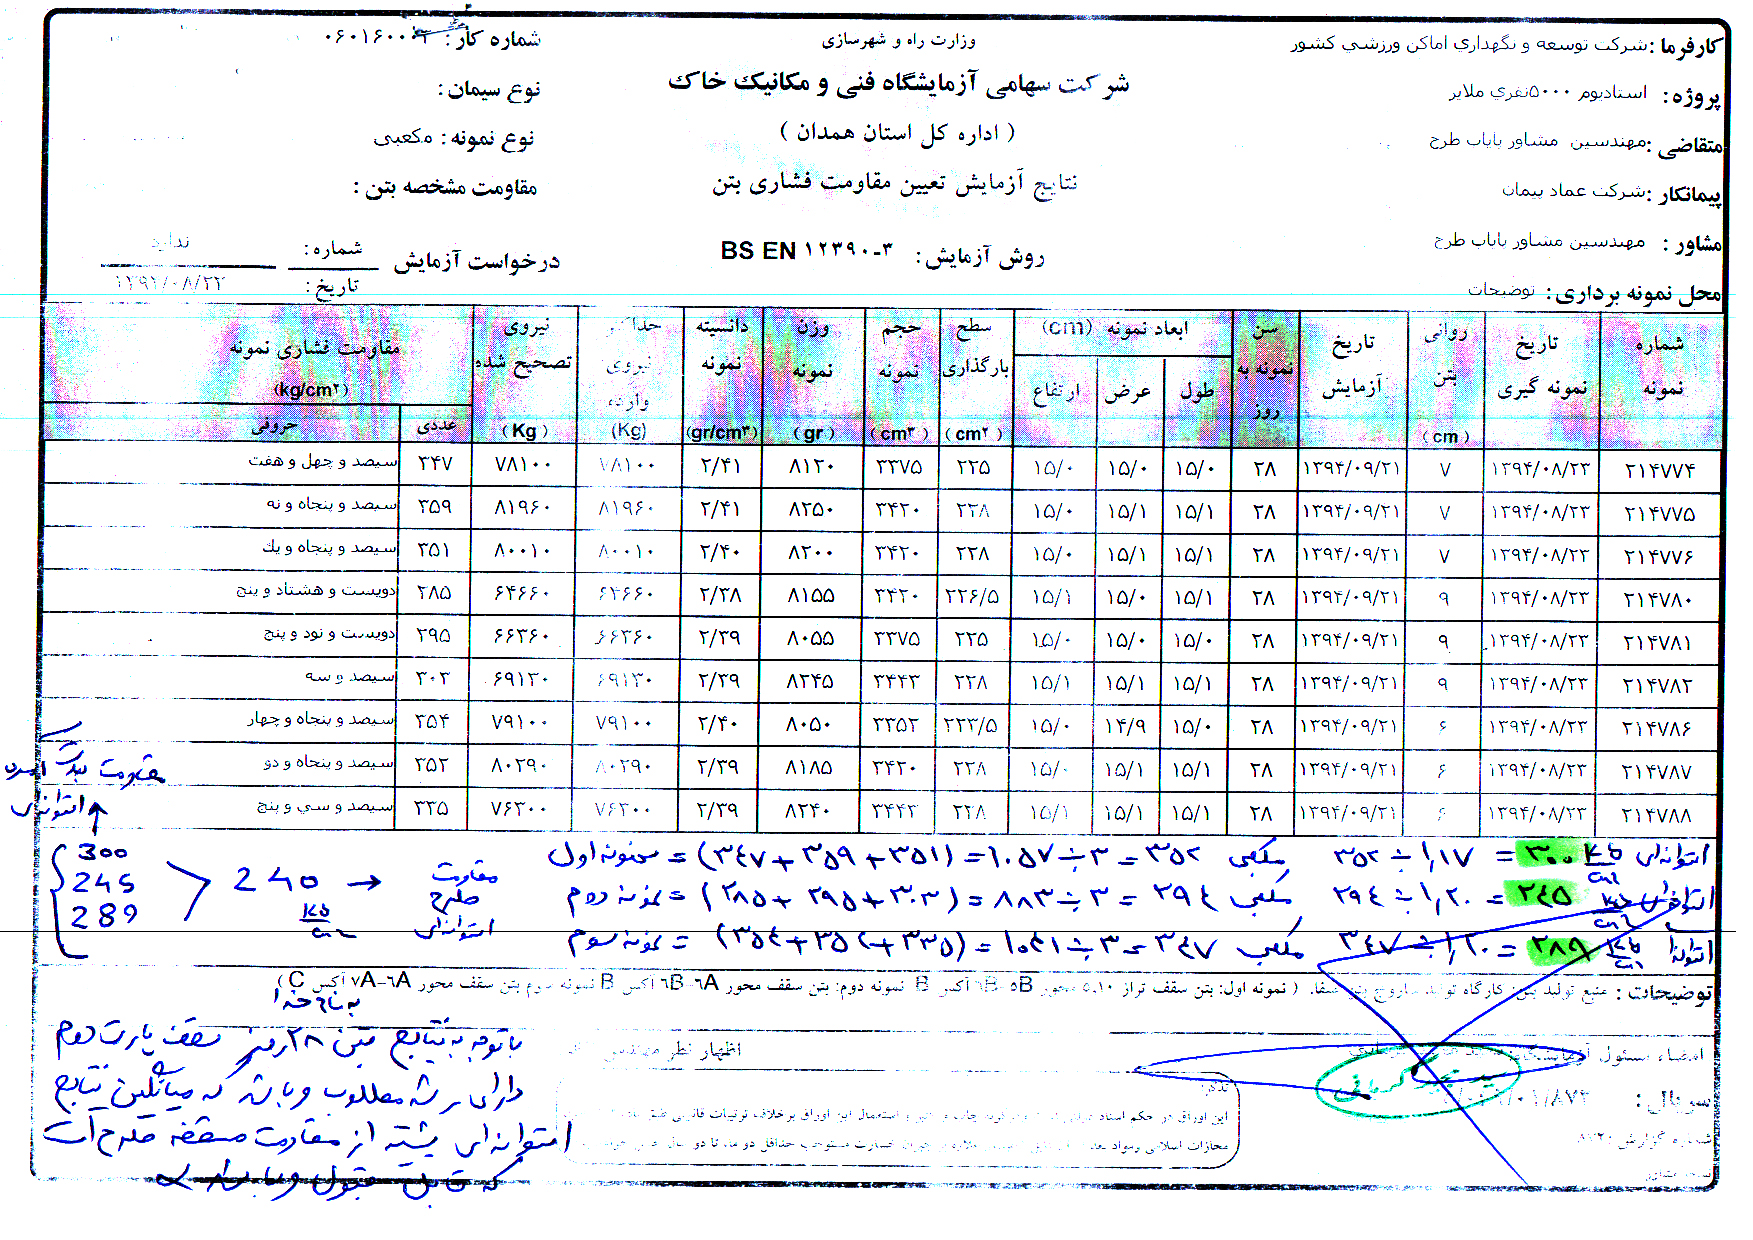 کارفرما : شرکت توسعه و نگهداري اماکن ورزشي کشور
پروژه : استادیوم ۵۰۰۰نفري ملایر
متقاضی : مهندسین مشاور باباب طرح
پیمانکار : شرکت عماد پیمان
مشاور : مهندسین مشاور باباب طرح
محل نمونه برداری : توضیحات
وزارت راه و شهرسازی
شرکت سهامی آزمایشگاه فنی و مکانیک خاک
( اداره کل استان همدان )
نتایج آزمایش تعیین مقاومت فشاری بتن
روش آزمایش : BS EN ۱۲۳۹۰-۳
شماره کار :
نوع سیمان :
نوع نمونه : مکعبی
مقاومت مشخصه بتن :
درخواست آزمایش شماره : ندارد
تاریخ : ۱۳۹۲/۰۸/۲۲
شماره نمونه | تاریخ نمونه گیری | روانی بتن (cm) | تاریخ آزمایش | سن نمونه به روز | ابعاد نمونه (cm) طول عرض ارتفاع | سطح بارگذاری (cm۲) | حجم نمونه (cm۳) | وزن نمونه (gr) | دانسیته نمونه (gr/cm۳) | حداکثر نیروی وارده (Kg) | نیروی تصحیح شده (Kg) | مقاومت فشاری نمونه (kg/cm۲) عددی حروفی
۲۱۴۷۷۴ ۱۳۹۴/۰۸/۲۳ ۷ ۱۳۹۴/۰۹/۲۱ ۲۸ ۱۵/۰ ۱۵/۰ ۱۵/۰ ۲۲۵ ۳۳۷۵ ۸۱۲۰ ۲/۴۱ ۷۸۱۰۰ ۷۸۱۰۰ ۳۴۷ سیصد و چهل و هفت
۲۱۴۷۷۵ ۱۳۹۴/۰۸/۲۳ ۷ ۱۳۹۴/۰۹/۲۱ ۲۸ ۱۵/۱ ۱۵/۱ ۱۵/۰ ۲۲۸ ۳۴۲۰ ۸۲۵۰ ۲/۴۱ ۸۱۹۶۰ ۸۱۹۶۰ ۳۵۹ سیصد و پنجاه و نه
۲۱۴۷۷۶ ۱۳۹۴/۰۸/۲۳ ۷ ۱۳۹۴/۰۹/۲۱ ۲۸ ۱۵/۱ ۱۵/۱ ۱۵/۰ ۲۲۸ ۳۴۲۰ ۸۲۰۰ ۲/۴۰ ۸۰۰۱۰ ۸۰۰۱۰ ۳۵۱ سیصد و پنجاه و یك
۲۱۴۷۸۰ ۱۳۹۴/۰۸/۲۳ ۹ ۱۳۹۴/۰۹/۲۱ ۲۸ ۱۵/۱ ۱۵/۰ ۱۵/۱ ۲۲۶/۵ ۳۴۲۰ ۸۱۵۵ ۲/۳۸ ۶۴۶۶۰ ۶۴۶۶۰ ۲۸۵ دویست و هشتاد و پنج
۲۱۴۷۸۱ ۱۳۹۴/۰۸/۲۳ ۹ ۱۳۹۴/۰۹/۲۱ ۲۸ ۱۵/۰ ۱۵/۰ ۱۵/۰ ۲۲۵ ۳۳۷۵ ۸۰۵۵ ۲/۳۹ ۶۶۳۶۰ ۶۶۳۶۰ ۲۹۵ دویست و نود و پنج
۲۱۴۷۸۲ ۱۳۹۴/۰۸/۲۳ ۹ ۱۳۹۴/۰۹/۲۱ ۲۸ ۱۵/۱ ۱۵/۱ ۱۵/۱ ۲۲۸ ۳۴۴۳ ۸۲۴۵ ۲/۳۹ ۶۹۱۳۰ ۶۹۱۳۰ ۳۰۳ سیصد و سه
۲۱۴۷۸۶ ۱۳۹۴/۰۸/۲۳ ۶ ۱۳۹۴/۰۹/۲۱ ۲۸ ۱۵/۰ ۱۴/۹ ۱۵/۰ ۲۲۳/۵ ۳۳۵۲ ۸۰۵۰ ۲/۴۰ ۷۹۱۰۰ ۷۹۱۰۰ ۳۵۴ سیصد و پنجاه و چهار
۲۱۴۷۸۷ ۱۳۹۴/۰۸/۲۳ ۶ ۱۳۹۴/۰۹/۲۱ ۲۸ ۱۵/۱ ۱۵/۱ ۱۵/۰ ۲۲۸ ۳۴۲۰ ۸۱۸۵ ۲/۳۹ ۸۰۲۹۰ ۸۰۲۹۰ ۳۵۲ سیصد و پنجاه و دو
۲۱۴۷۸۸ ۱۳۹۴/۰۸/۲۳ ۶ ۱۳۹۴/۰۹/۲۱ ۲۸ ۱۵/۱ ۱۵/۱ ۱۵/۱ ۲۲۸ ۳۴۴۳ ۸۲۴۰ ۲/۳۹ ۷۶۳۰۰ ۷۶۳۰۰ ۳۳۵ سیصد و سي و پنج
نمونه اول = (۳۴۷+۳۵۹+۳۵۱) = ۱۰۵۷ ÷ ۳ = ۳۵۲ مکعبی ۳۵۲ ÷ ۱,۱۷ = ۳۰۰ استوانه‌ای
نمونه دوم = (۲۸۵+۲۹۵+۳۰۳) = ۸۸۳ ÷ ۳ = ۲۹۴ مکعبی ۲۹۴ ÷ ۱,۲۰ = ۲۴۵ استوانه‌ای
نمونه سوم = (۳۵۴+۳۵۲+۳۳۵) = ۱۰۴۱ ÷ ۳ = ۳۴۷ مکعبی ۳۴۷ ÷ ۱,۲۰ = ۲۸۹
مقاومت
استوانه‌ای
300
245
289
240 → مقاومت طرح استوانه‌ای
توضیحات : منبع تولید بتن: کارگاه تولید ( نمونه اول: بتن سقف تراز ۵.۱۰ محور ۵B-۶B آکس B نمونه دوم: بتن سقف محور ۶A-۶B آکس B نمونه سوم بتن سقف محور ۶A-۷A آکس C )
با توجه به نتایج بتن ۲۸ روزه سقف پارت دوم
دارای مطلوب که میانگین نتایج
استوانه‌ای بیشتر از مقاومت مشخصه طرح است
که قابل قبول
اظهار نظر مهندس
امضاء مسئول آزمایشگاه
تذکر:
سریال :
شماره گزارش